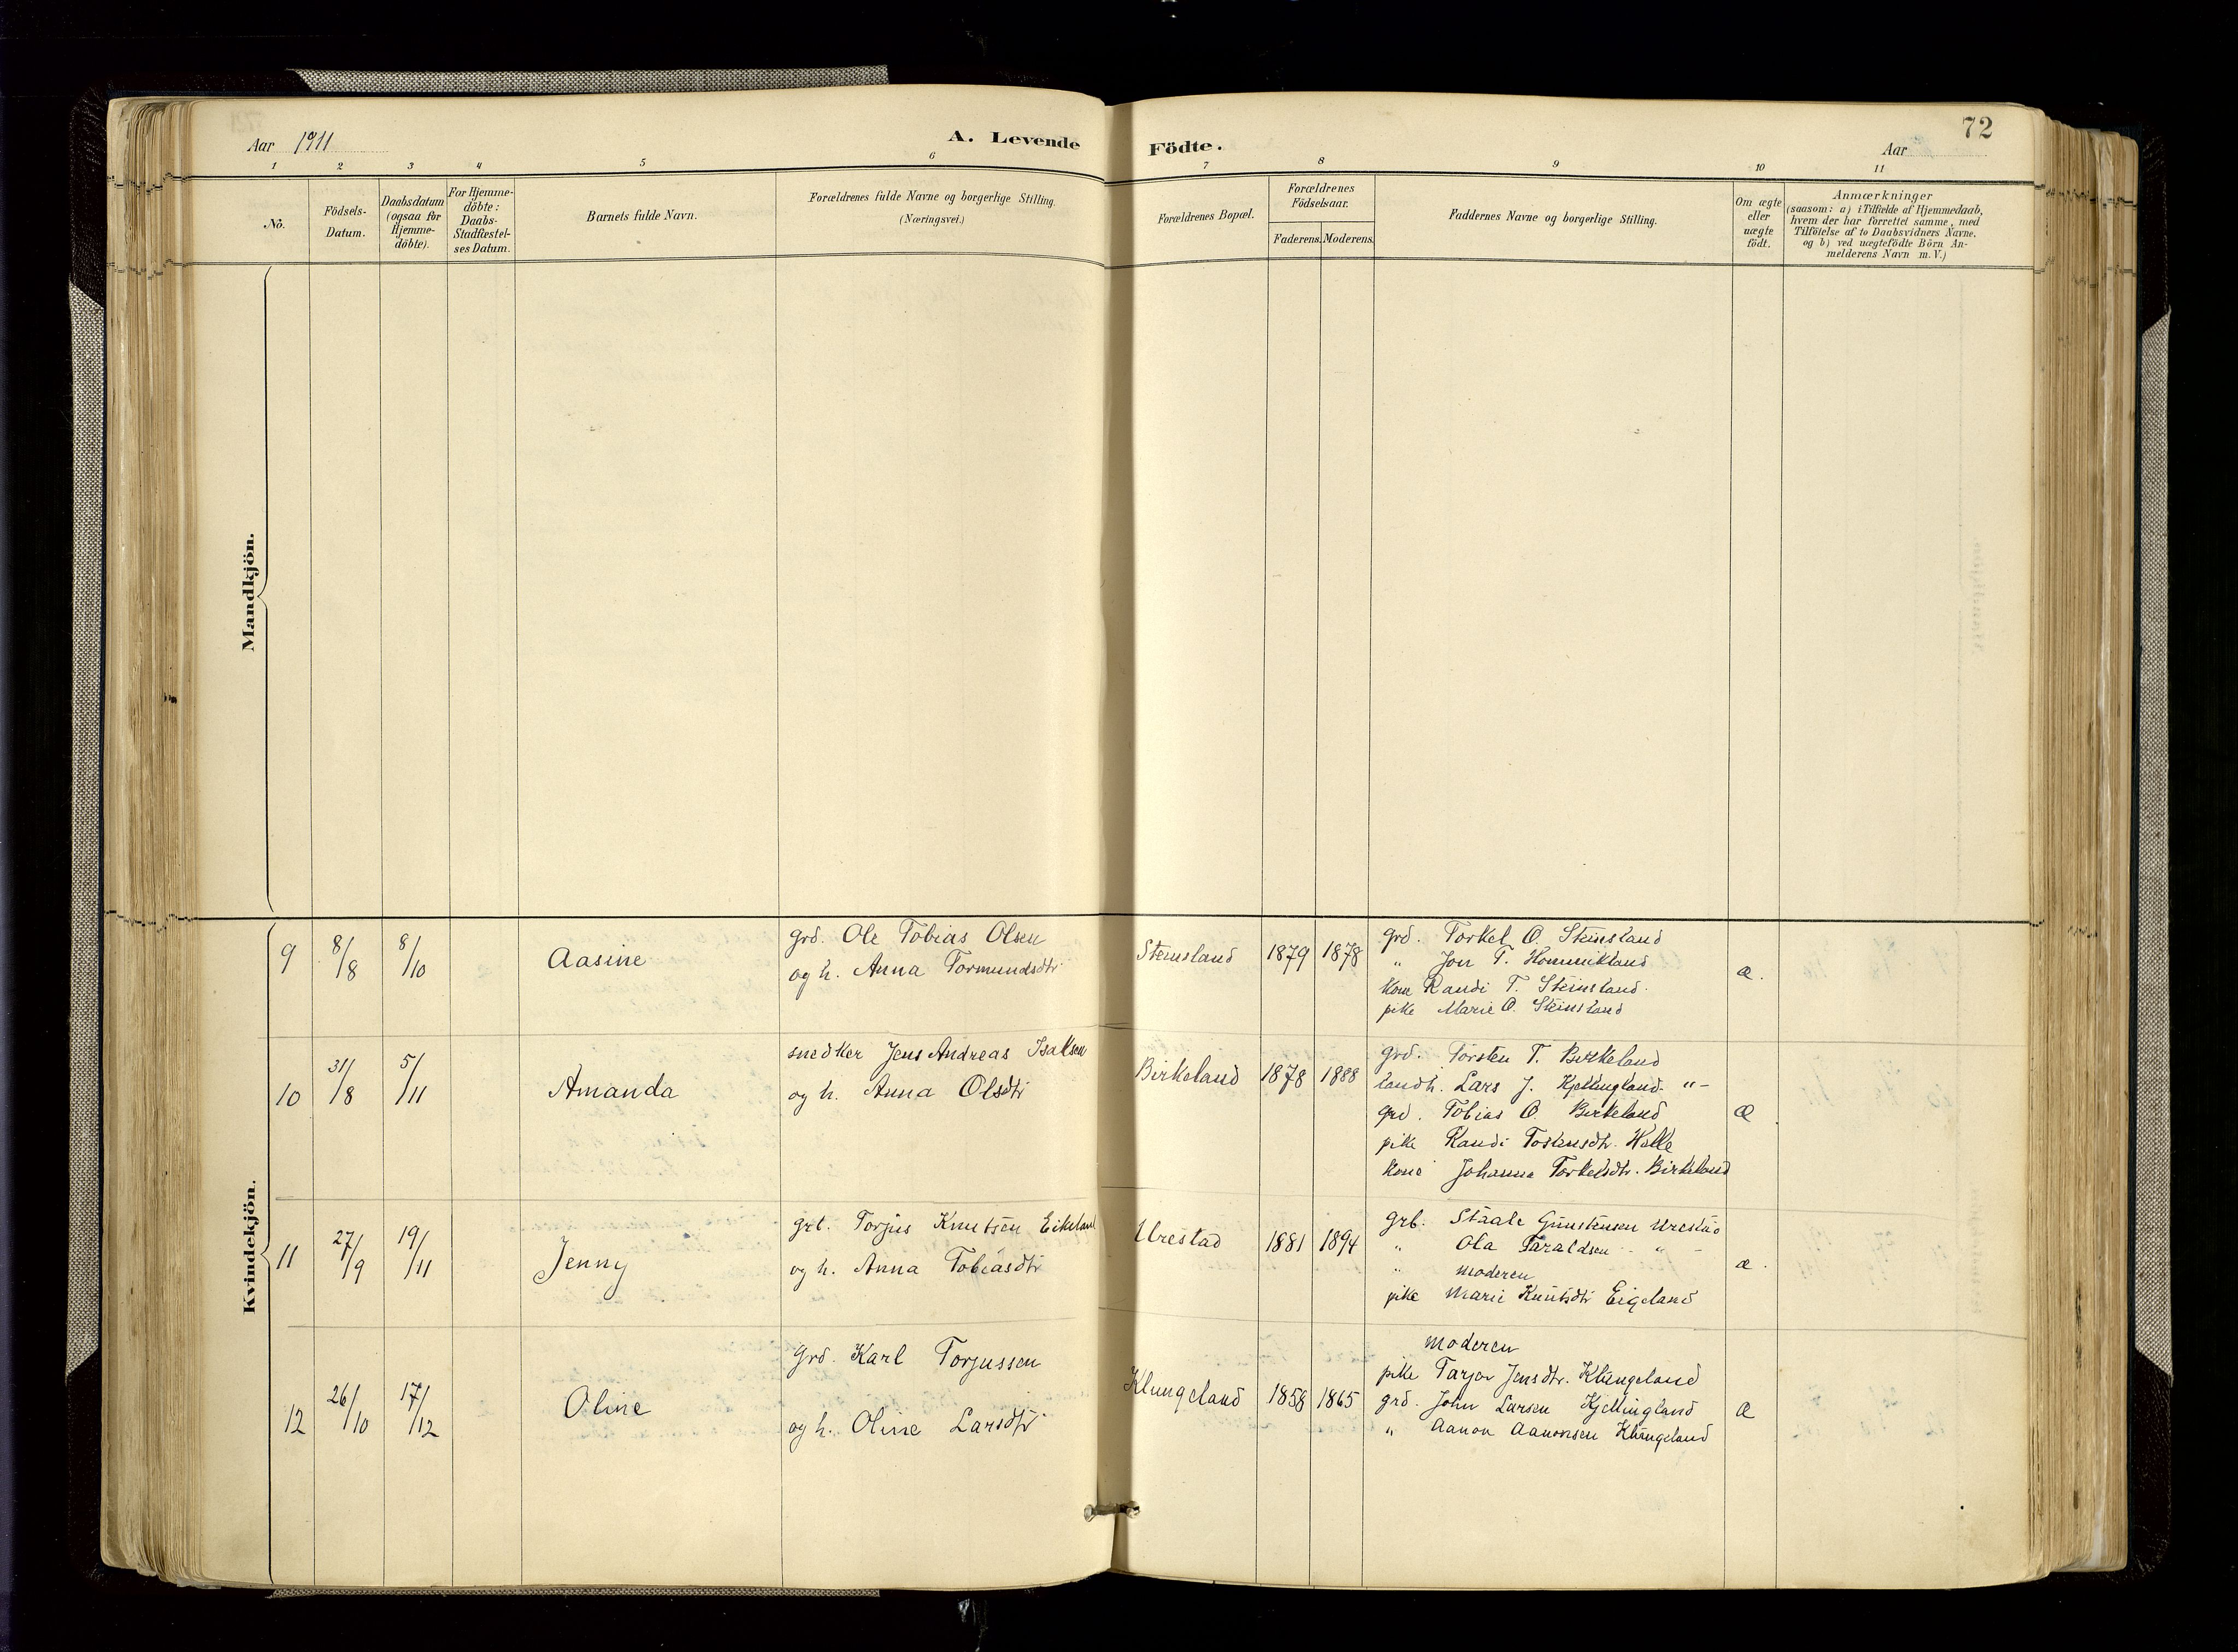 72
Aar 1911
A. Levende Födte.
Aar
1 2 3 4 5 6 7 8 9 10 11
No.
Födsels-
Datum.
Daabsdatum
(ogsaa for
Hjemme-
döbte).
For Hjemme-
döbte:
Daabs-
Stadfæstel-
ses Datum.
Barnets fulde Navn.
Forældrenes fulde Navne og borgerlige Stilling.
(Næringsvei.)
Forældrenes Bopæl.
Forældrenes
Födselsaar.
Faderens. Moderens.
Faddernes Navne og borgerlige Stilling.
Om ægte
eller
uægte
födt.
Anmærkninger
(saasom: a) i Tilfælde af Hjemmedaab,
hvem der har forrettet samme, med
Tilföielse af to Daabsvidners Navne,
og b) ved uægtefödte Börn An-
melderens Navn m. V.)
Mandkjön.
Kvindekjön.
9 8/8 8/10 Aasine
grd. Ole Tobias Olsen
og h. Anna Tormundsdtr
Steinsland 1879 1878
grd. Torkel O. Steinsland
" Jon T. Hommikland
kone Randi T. Steinsland.
pike Marie O. Steinsland
æ.
10 31/8 5/11 Amanda
snedker Jens Andreas Isaksen
og h. Anna Olsdtr
Birkeland 1878 1888
grd. Torsten T. Birkeland
landh. Lars J. Kjellingland. "-
grd. Tobias O. Birkeland
pike Randi Tostensdtr. Helle
kone Johanna Torkelsdtr. Birkeland
Æ
11 27/9 19/11 Jenny
grb. Torjus Knutsen Eikeland
og h. Anna Tobiasdtr
Urestad 1881 1894
grb. Staale Gunstensen Urestad
" Ola Taraldsen - " -
" moderen
pike Marie Knutsdtr Eigeland
æ.
12 26/10 17/12 Oline
grd. Karl Torjussen
og h. Oline Larsdtr
Klungeland 1858 1865
moderen
pike Tarjer Jensdtr. Klungeland
grd. John Larsen Kjellingland
" Aanon Aanonsen Klungeland
Æ